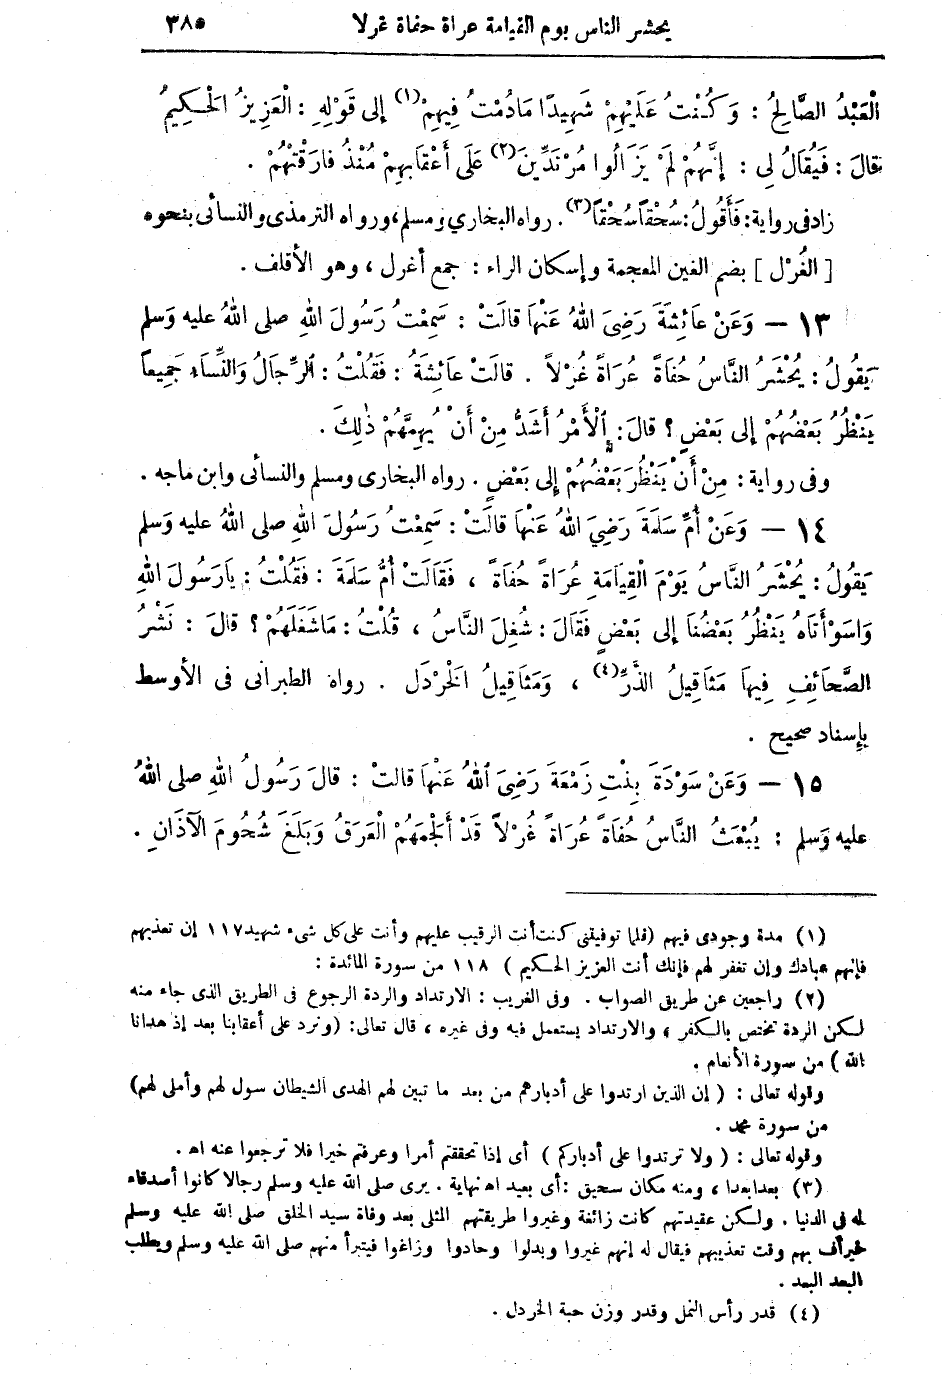 يحشر الناس يوم القيامة عراة حفاة غرلا ٣٨٥
الْعَبْدُ الصَّالِحُ : وَكُنْتُ عَلَيْهِمْ شَهِيدًا مَادُمْتُ فِيهِمْ (١) إلى قَوْلِهِ : الْعَزِيزُ الْحَكِيمُ
قالَ : فَيُقَالُ لِى : إِنَّهُمْ لَمْ يَزَالُوا مُرْتَدِّينَ (٢) عَلَى أَعْقَابِهِمْ مُنْذُ فَارَقْتَهُمْ .
زاد فى رواية : فَأَقُولُ : سُحْقاً سُحْقاً (٣) . رواه البخارى ومسلم ، ورواه الترمذى والنسائى بنحوه
[ الغُرْل ] بضم الغين المعجمة وإسكان الراء : جمع أغرل ، وهو الأقلف .
١٣ — وَعَنْ عَائِشَةَ رَضِىَ اللهُ عَنْهَا قالَتْ : سَمِعْتُ رَسُولَ اللهِ صلى اللهُ عليه وَسلم
يَقُولُ : يُحْشَرُ النَّاسُ حُفَاةً عُرَاةً غُرْلاً . قالَتْ عائِشَةُ : فَقُلْتُ : الرِّجَالُ وَالنِّسَاءُ جَمِيعاً
يَنْظُرُ بَعْضُهُمْ إلى بَعْضٍ ؟ قالَ : الْأَمْرُ أَشَدُّ مِنْ أَنْ يُهِمَّهُمْ ذٰلِكَ .
وفى رواية : مِنْ أَنْ يَنْظُرَ بَعْضُهُمْ إلى بَعْضٍ . رواه البخارى ومسلم والنسائى وابن ماجه .
١٤ — وَعَنْ أُمِّ سَلَمَةَ رَضِىَ اللهُ عَنْهَا قالَتْ : سَمِعْتُ رَسُولَ اللهِ صلى اللهُ عليه وَسلم
يَقُولُ : يُحْشَرُ النَّاسُ يَوْمَ الْقِيَامَةِ عُرَاةً حُفَاةً ، فَقَالَتْ أُمُّ سَلَمَةَ : فَقُلْتُ : يَارَسُولَ اللهِ
وَاسَوْأَتَاهُ يَنْظُرُ بَعْضُنَا إلى بَعْضٍ فَقَالَ : شُغِلَ النَّاسُ ، قُلْتُ : مَاشَغَلَهُمْ ؟ قالَ : نَشْرُ
الصَّحَائِفِ فِيهَا مَثَاقِيلُ الذَّرِّ (٤) ، وَمَثَاقِيلُ الْخَرْدَل . رواه الطبرانى فى الأوسط
بإسناد صحيح .
١٥ — وَعَنْ سَوْدَةَ بِنْتِ زَمْعَةَ رَضِىَ اللهُ عَنْهَا قالَتْ : قالَ رَسُولُ اللهِ صلى اللهُ
عليه وَسلم : يُبْعَثُ النَّاسُ حُفَاةً عُرَاةً غُرْلاً قَدْ أَلْجَمَهُمْ الْعَرَقُ وَبَلَغَ شُحُومَ الآذَانِ .
(١) مدة وجودى فيهم (فلما توفيتنى كنت أنت الرقيب عليهم وأنت على كل شىء شهيد ١١٧ إن تعذبهم
فإنهم عبادك وإن تغفر لهم فإنك أنت العزيز الحكيم ) ١١٨ من سورة المائدة :
(٢) راجعين عن طريق الصواب . وفى الغريب : الارتداد والردة الرجوع فى الطريق الذى جاء منه
لكن الردة تختص بالكفر ، والارتداد يستعمل فيه وفى غيره ، قال تعالى : (ونرد على أعقابنا بعد إذ هدانا
الله ) من سورة الأنعام .
وقوله تعالى : ( إن الذين ارتدوا على أدبارهم من بعد ما تبين لهم الهدى الشيطان سول لهم وأملى لهم)
من سورة محمد .
وقوله تعالى : ( ولا ترتدوا على أدباركم ) أى إذا تحققتم أمرا وعرفتم خيرا فلا ترجعوا عنه اه .
(٣) بعدا بعدا ، ومنه مكان سحيق : أى بعيد اه نهاية . يرى صلى الله عليه وسلم رجالا كانوا أصدقاء
له فى الدنيا . ولكن عقيدتهم كانت زائفة وغيروا طريقتهم المثلى بعد وفاة سيد الخلق صلى الله عليه وسلم
فيرأف بهم وقت تعذيبهم فيقال له إنهم غيروا وبدلوا وحادوا وزاغوا فيتبرأ منهم صلى الله عليه وسلم ويطلب
البعد البعد .
(٤) قدر رأس النمل وقدر وزن حبة الخردل .